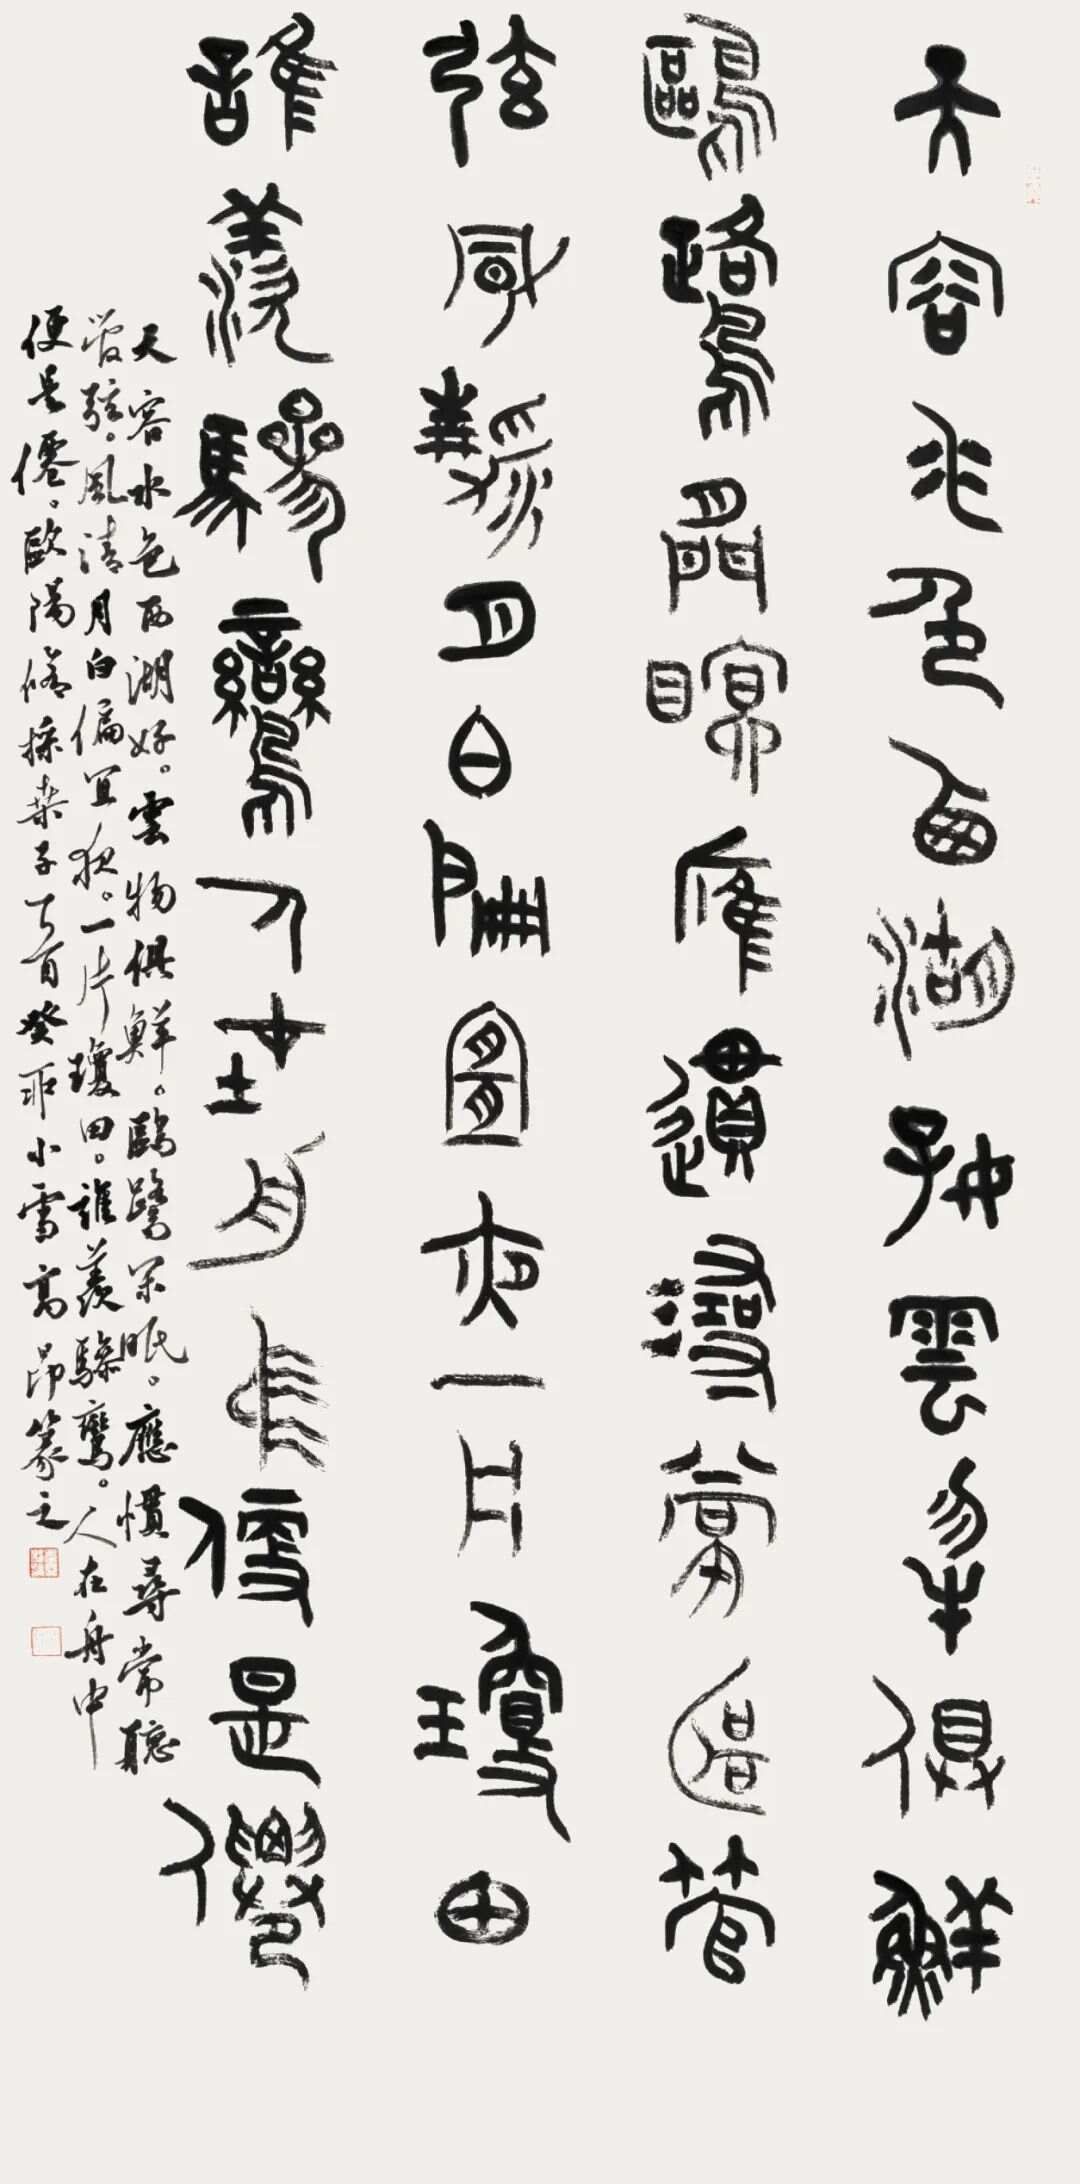 天容水色西湖好雲物俱鮮
鷗鷺閒眠應慣尋常聽管
弦風清月白偏宜夜一片瓊田
誰羨驂鸞人在舟中便是僊
天容水色西湖好。雲物俱鮮。鷗鷺閑眠。應慣尋常聽
管弦。風清月白偏宜夜。一片瓊田。誰羨驂鸞。人在舟中
便是僊。歐陽脩採桑子一首癸卯小雪高昂篆之